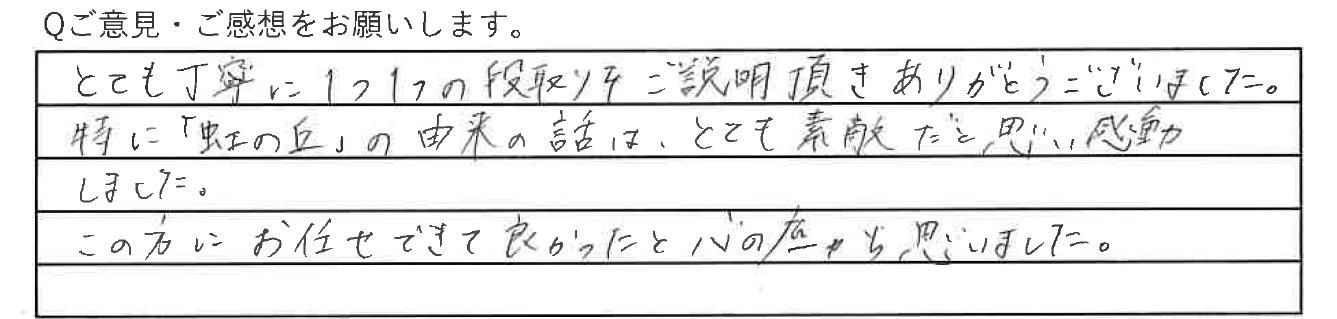 Qご意見・ご感想をお願いします。
とても丁寧に1つ1つの段取りをご説明頂きありがとうございました。
特に「虹の丘」の由来の話は、とても素敵だと思い、感動
しました。
この方にお任せできて良かったと心の底から思いました。